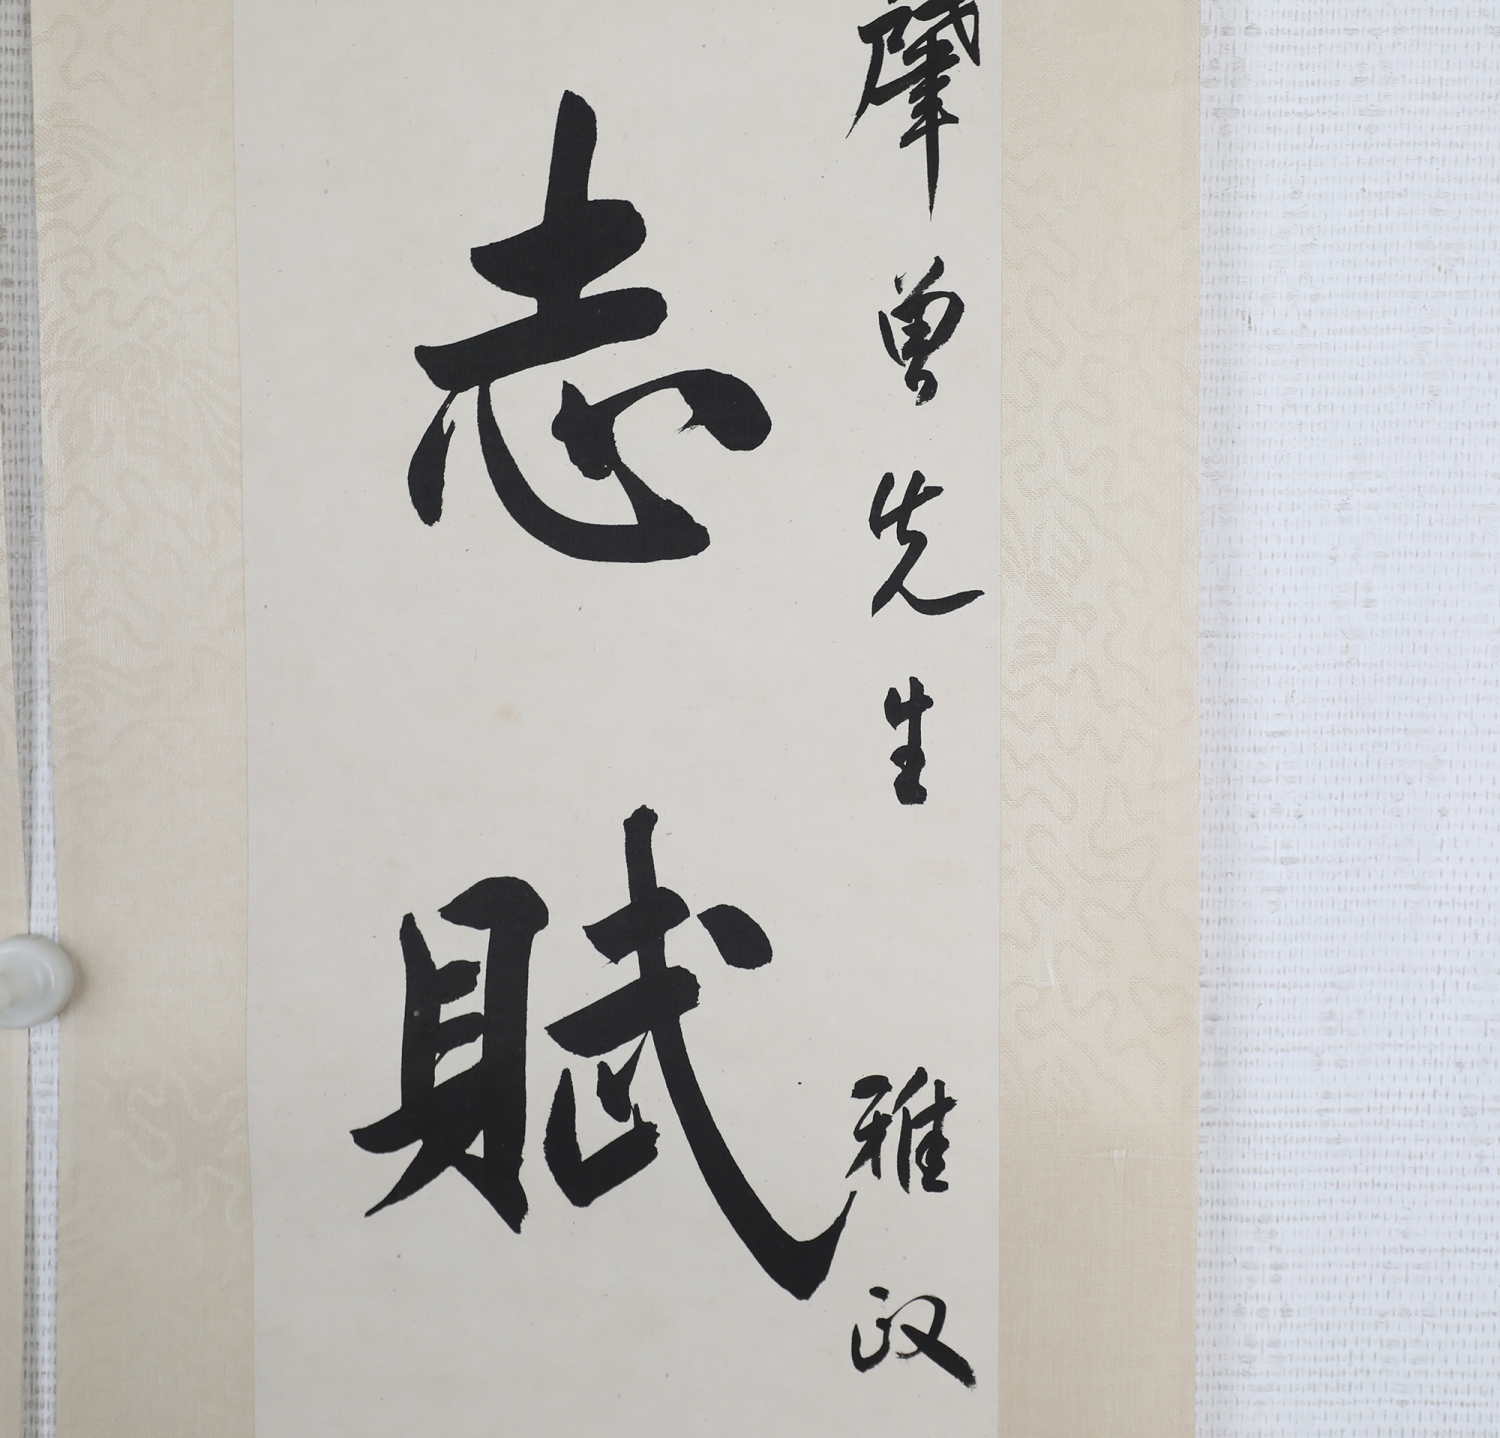 肇曾先生 雅政
志賦